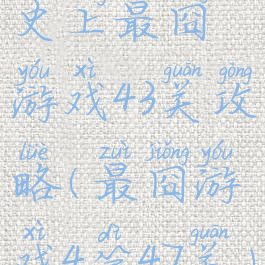 史上最囧
yóu xì guān gōng
游戏43关攻
lüè zuì jiǒng yóu
略(最囧游
xì dì guān
戏4第47关)